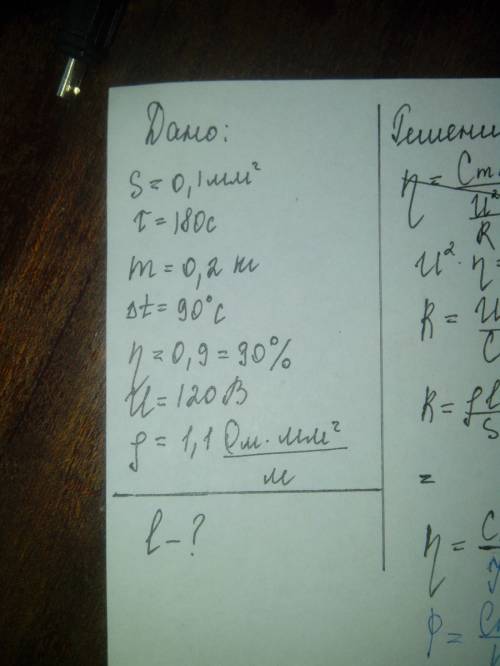 Дано:
S = 0,1 мм²
τ = 180 с
m = 0,2 кг
Δt = 90°C
η = 0,9 = 90%
U = 120 В
ρ = 1,1 Ом · мм² / м
l - ?
Решени
η = Cm
U²
R
U² · η =
R = U
C
R = ρl
S
=
η = C
φ = Cm